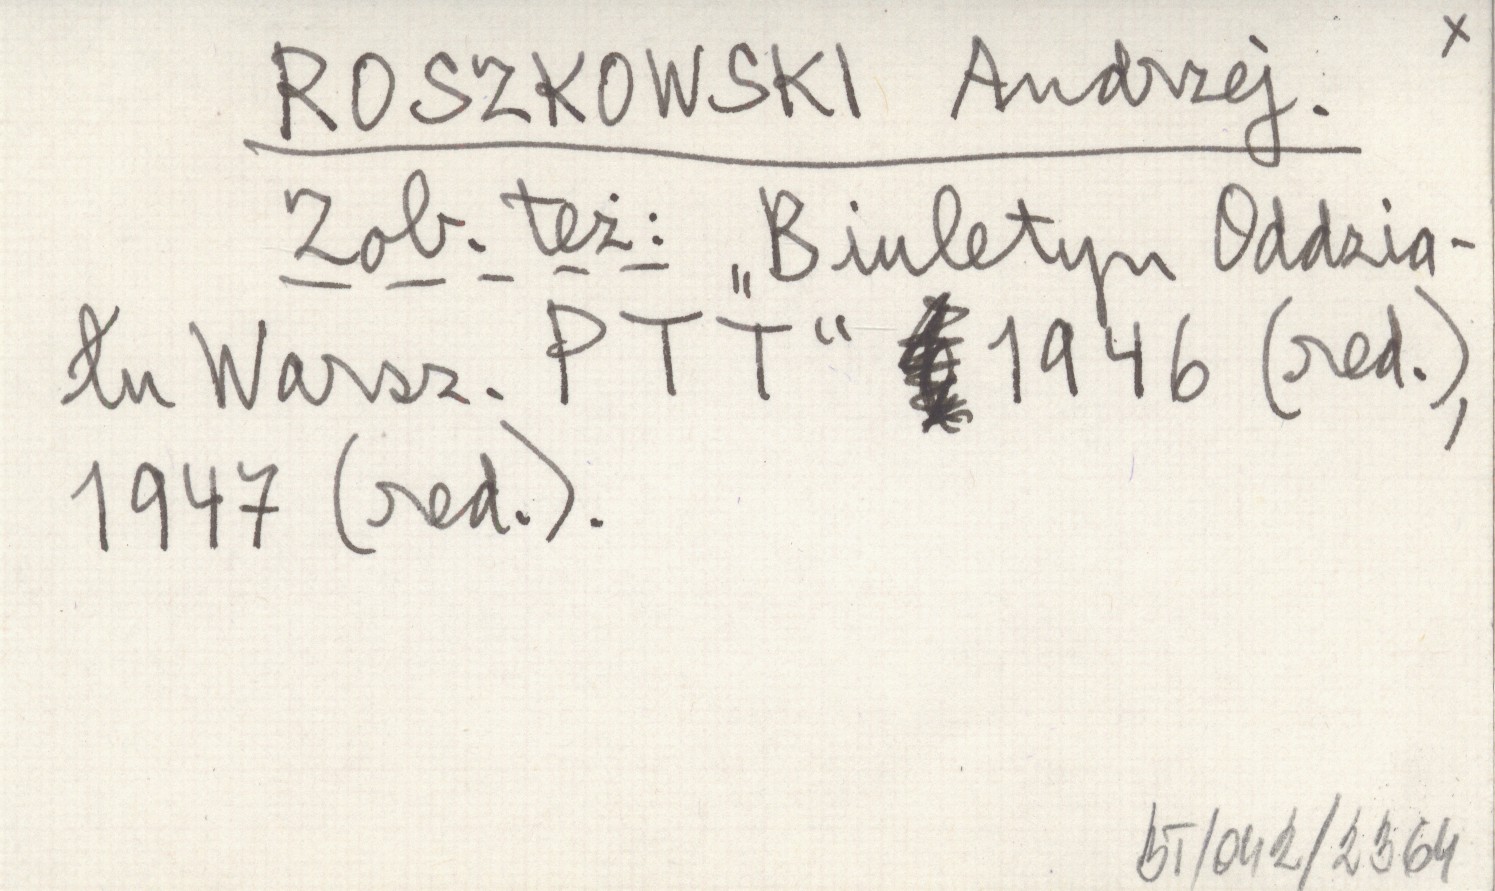 x
ROSZKOWSKI Andrzej.
Zob. też: „Biuletyn Oddzia-
łu Warsz. PTT“ 1946 (red.),
1947 (red.).
BT/042/2364